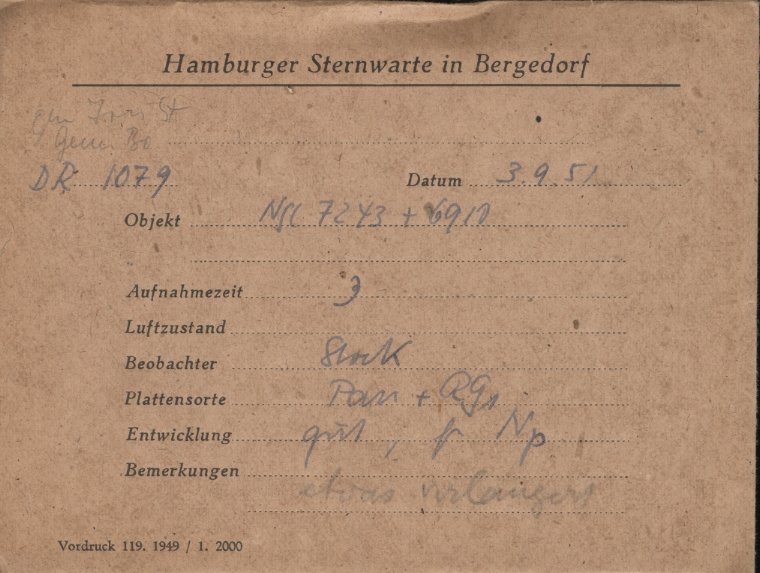 Hamburger Sternwarte in Bergedorf
DR 1079
Datum 3.9.51
Objekt NGC 7243 + 6910
Aufnahmezeit 3
Luftzustand
Beobachter Stock
Plattensorte Pan + RG1
Entwicklung gut, Np
Bemerkungen
etwas verlängert
Vordruck 119. 1949 / 1. 2000